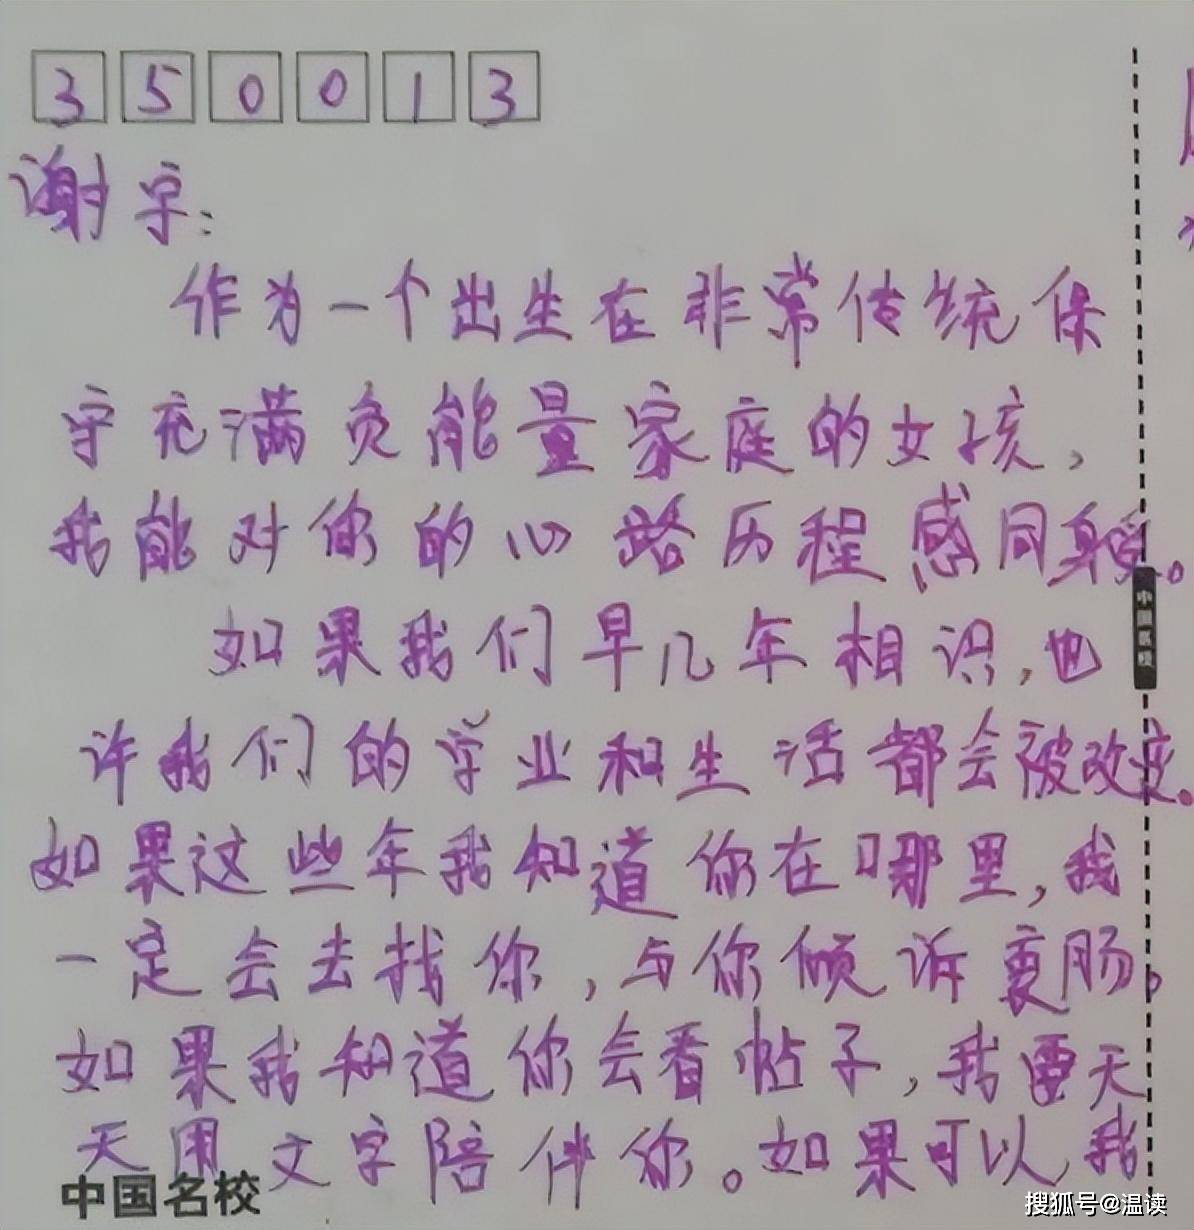 350013
谢宇：
作为一个出生在非常传统保
守充满负能量家庭的女孩，
我能对你的心路历程感同身受。
如果我们早几年相识，也
许我们的学业和生活都会被改变。
如果这些年我知道你在哪里，我
一定会去找你，与你倾诉衷肠。
如果我知道你会看帖子，我要天
天用文字陪伴你。如果可以，我
中国名校
中国名校
搜狐号@温读